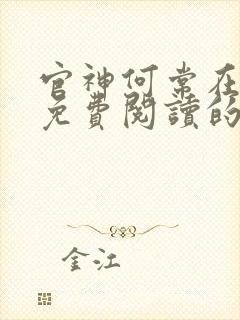 官神何常在
免費閱讀的
金江